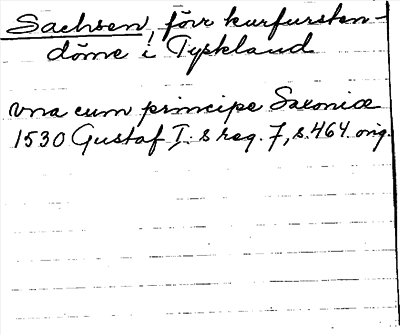 Sachsen, förr kurfursten-
döme i Tyskland
una cum principe Saxoniæ
1530 Gustaf I:s reg. 7, s. 464 orig.